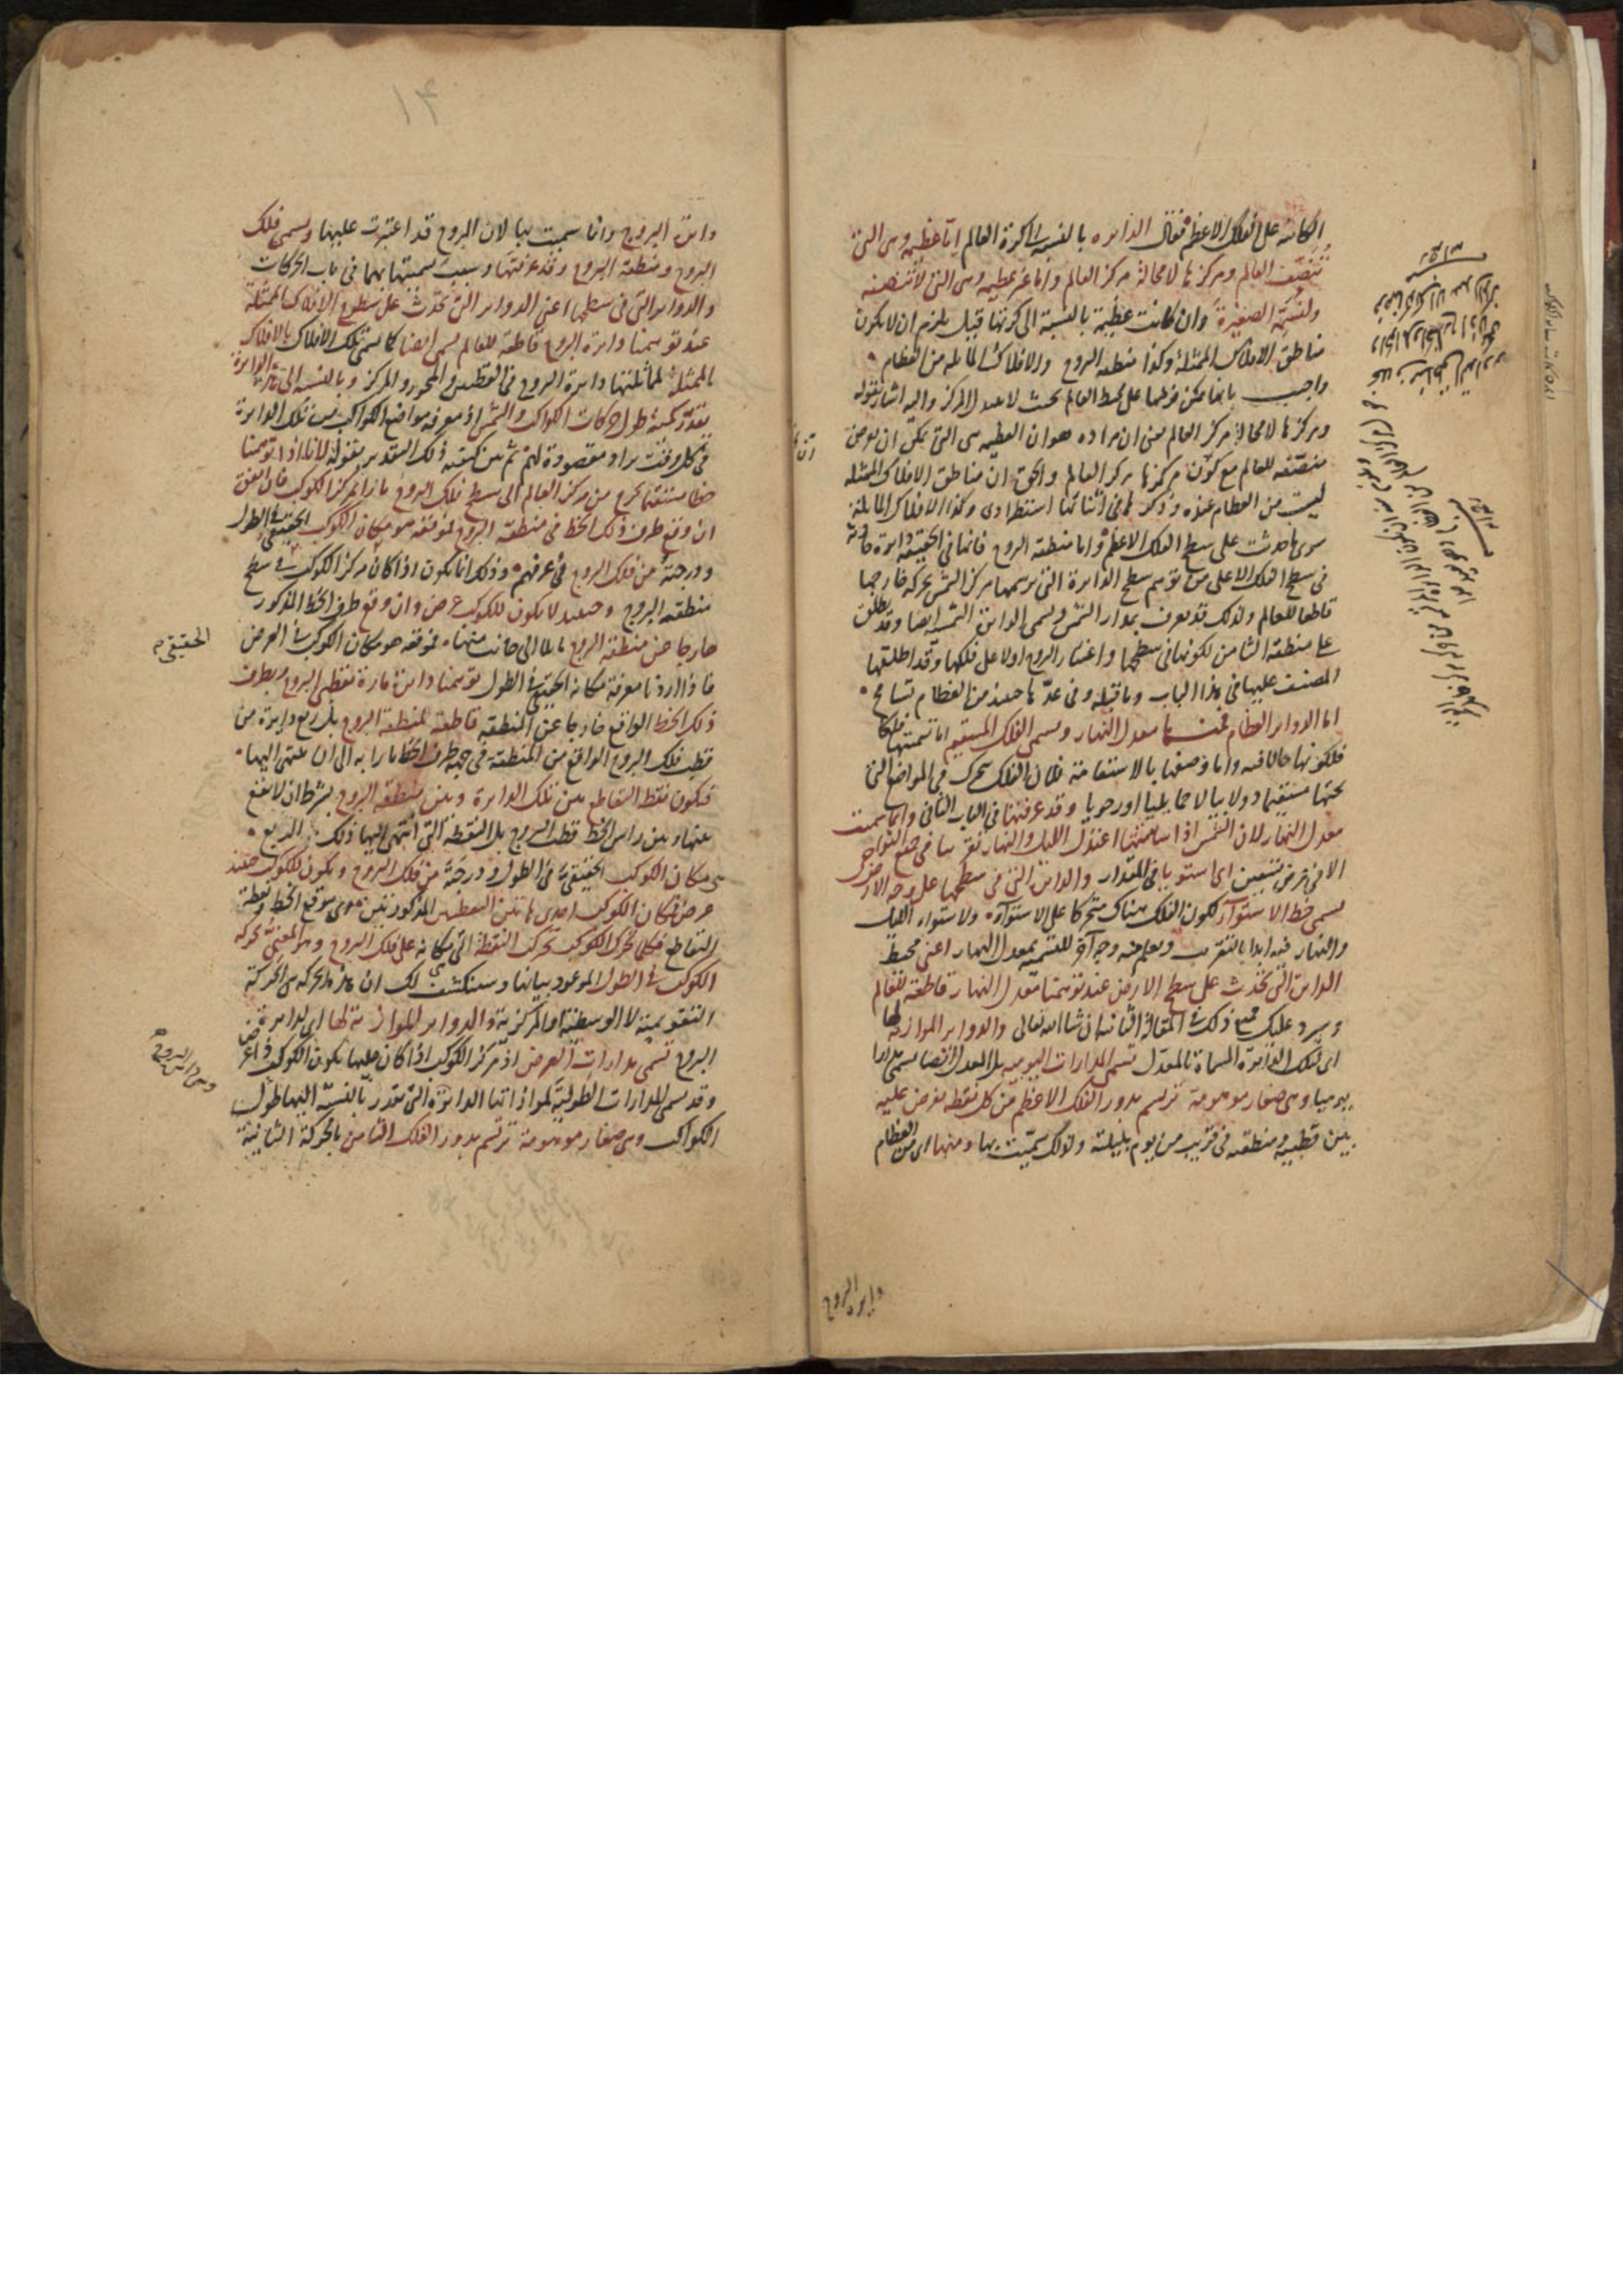 الكائنة على الفلك الاعظم فقال الدائره بالنسبة الى كرة العالم اما عظيمه وهى التى
تنصف العالم ومركزها لا محالة مركز العالم واما غير عظيمه وهى التى لا تنصفه
ولنسمّه الصغيرة وان كانت عظيمة بالنسبة الى كرتها قيل يلزم ان لا يكون
مناطق الافلاك الممثلة وكذا منطقة البروج والافلاك المايله من العظام
واجيب بانها يمكن فرضها على محيط العالم بحيث لا يتبدل المركز واليه اشار بقوله
ومركزها لا محالة مركز العالم يعنى ان مراده هو ان العظيمه هى التى يمكن ان يفرض
منصّفه للعالم مع كون مركزها مركز العالم والحق انّ مناطق الافلاك الممثله
ليست من العظام عنده وذكرها فى اثنائها استطرادى وكذا الافلاك المايلة
سوى ما حدثت على سطح الفلك الاعظم واما منطقة البروج فانها فى الحقيقة دائرة حادثة
فى سطح الفلك الاعلى من توهم سطح الدائرة التى يرسمها مركز الشمس بحركة خارجها
قاطعا للعالم ولذلك قد يعرف بمدار الشمس ويسمى الدائرة الشمسية ايضا وقد يطلق
على منطقة الثامن لكونها فى سطحها واعتبار البروج اولا على فلكها وقد اطلقها
المصنف عليها فى هذا الباب وما قبله وفى عدّها حينئذ من العظام تسامح
اما الدوائر العظام فمنها معدل النهار ويسمى الفلك المستقيم اما تسميتها فلكا
فلكونها حالا فيه واما وصفها بالاستقامة فلان الفلك يتحرك فى المواضع التى
تحتها مستقيما دولابيا لا حمايليا او رحويا وقد عرفتها فى الباب الثانى وانما سميت
معدل النهار لان الشمس اذا سامتتها اعتدل الليل والنهار تقريبا فى جميع النواحى
الا فى عرض تسعين اى استويا فى المقدار والدائرة التى فى سطحها على وجه الارض
يسمى خط الاستواء لكون الفلك هناك متحركا على الاستواء ولاستواء الليل
والنهار فيه ابدا بالتقريب ويعلم منه وجه آخر للتسميه بمعدل النهار اعنى محيط
الدائرة التى تحدث على سطح الارض عند توهمنا معدل النهار قاطعة للعالم
وسيرد عليك ذلك فى المقالة الثانية ان شاء الله تعالى والدوائر الموازية لها
اى لتلك الدائرة المسماة بالمعدل تسمى المدارات اليومية بل المعدل ايضا يسمى مدارا
يوميا وهى صغار موهومة ترتسم بدور الفلك الاعظم من كل نقطة تفرض عليه
بين قطبيه ومنطقته فى قريب من يوم بليلته ولذلك سمّيت بها ومنها اى من العظام
دايرة البروج
دائرة البروج وانما سميت بها لان البروج قد اعتبرت عليها ويسمى فلك
البروج ومنطقة البروج وقد عرفتها وسبب تسميتها بهما فى باب الحركات
والدوائر التى فى سطحها اعنى الدوائر التى تحدث على سطوح الافلاك الممثلة
عند توهمنا دائرة البروج قاطعة للعالم يسمى ايضا كما سمى تلك الافلاك بالافلاك
الممثلة لمماثلتها دائرة البروج فى القطبين والمحور والمركز وبالنسبة الى هذه الدائرة
تقدر كمية طول حركات الكواكب والشمس اذ معرفه مواضع الكواكب من تلك الدائرة
فى كل وقت يراد مقصودة لهم ثم بين كيفية ذلك التقدير بقوله لانا اذا توهمنا
خطا مستقيما يخرج من مركز العالم الى سطح فلك البروج مارا بمركز الكوكب فان اتفق
ان وقع طرف ذلك الخط فى منطقة البروج فموقعه هو مكان الكوكب الحقيقى فى الطول
ودرجته من فلك البروج فى عرفهم وذلك انما يكون اذا كان مركز الكوكب فى سطح
منطقة البروج وحينئذ لا يكون للكوكب عرض وان وقع طرف الخط المذكور
خارجا عن منطقة البروج مايلا الى جانب منها فموقعه هو مكان الكوكب فى العرض
الحقيقى
فاذا اردنا معرفة مكانه الحقيقى فى الطول توهمنا دائرة مارة بقطبى البروج وبطرف
ذلك الخط الواقع خارجا عن المنطقه قاطعة لمنطقة البروج بل ربع دايرة من
قطب فلك البروج الواقع من المنطقة فى جهة طرف الخط مارا به الى ان ينتهى اليها
فيكون نقطة التقاطع بين تلك الدائرة وبين منطقة البروج بشرط ان لا يقع
بينها وبين راس الخط قطب البروج بل النقطه التى انتهى اليها ذلك الربع
هى مكان الكوكب الحقيقى فى الطول ودرجته من فلك البروج ويكون للكوكب حينئذ
عرض فمكان الكوكب احدى هاتين النقطتين المذكورتين وهى موقع الخط ونقطة
التقاطع فكلما تحرك الكوكب تحركت النقطة التى مكانه على فلك البروج وهو المعنى بحركه
الكوكب فى الطول الموعود بيانها وسينكشف لك ان هذه الحركه هى الحركة
التقويمية لا الوسطية او المركزية والدوائر الموازية لها اى لدائرة
وهى دائرة البروج
البروج تسمى مدارات العرض اذ مركز الكوكب اذا كان عليها يكون الكوكب ذا عرض
وقد يسمى المدارات الطولية لموازاتها الدائرة التى تقدر بالنسبة اليها طول
الكواكب وهى صغار موهومة ترتسم بدور الفلك الثامن بالحركة الثانية